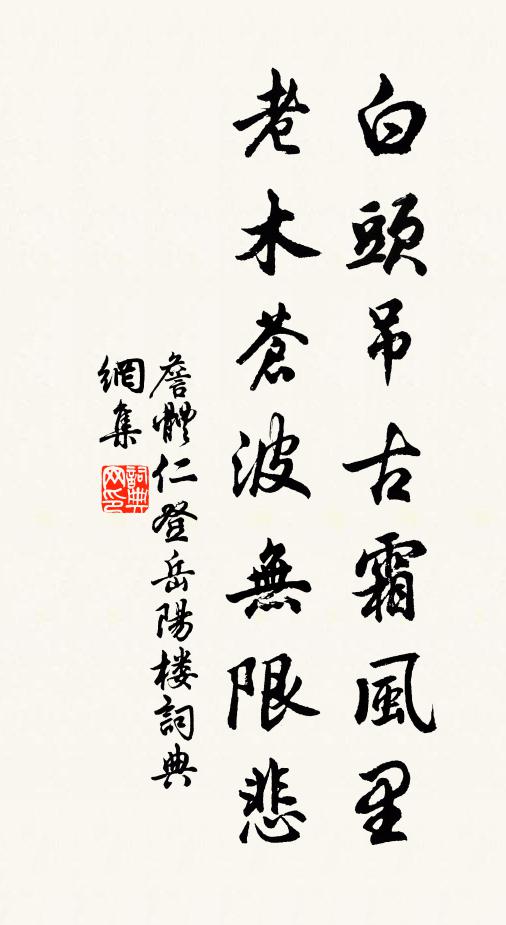 白頭吊古霜風里
老木蒼波無限悲
詹體仁登岳陽楼詞典
網集
詞典
网印